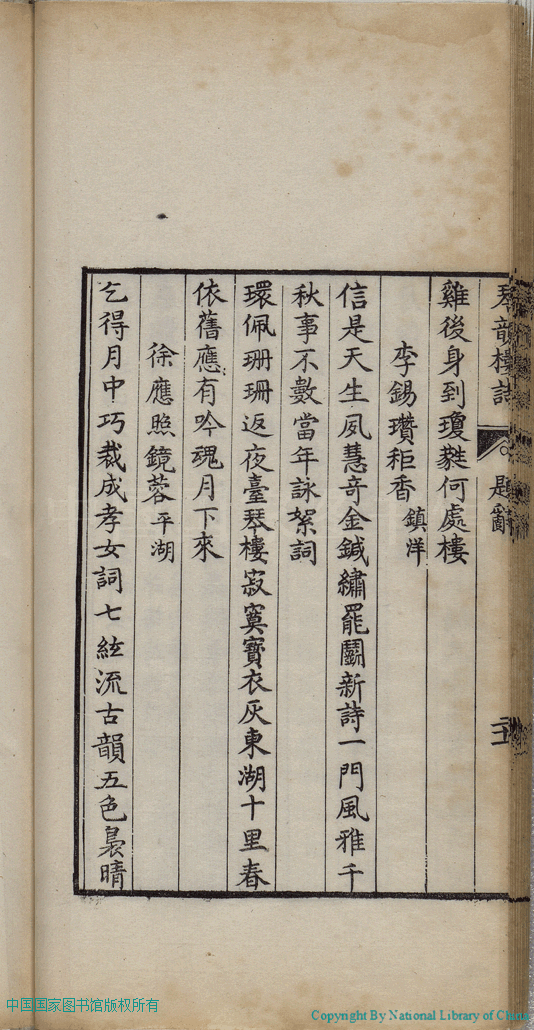 琴韻樓詩 題辭
難後身到瓊蕤何處樓
李錫瓚秬香鎮洋
信是天生夙慧奇金鍼繡罷鬭新詩一門風雅千
秋事不數當年詠絮詞
環佩珊珊返夜臺琴樓寂寞寶衣灰東湖十里春
依舊應有吟魂月下來
徐應照鏡蓉平湖
乞得月中巧裁成孝女詞七絃流古韻五色裊晴
中国国家图书馆版权所有
Copyright By National Library of China